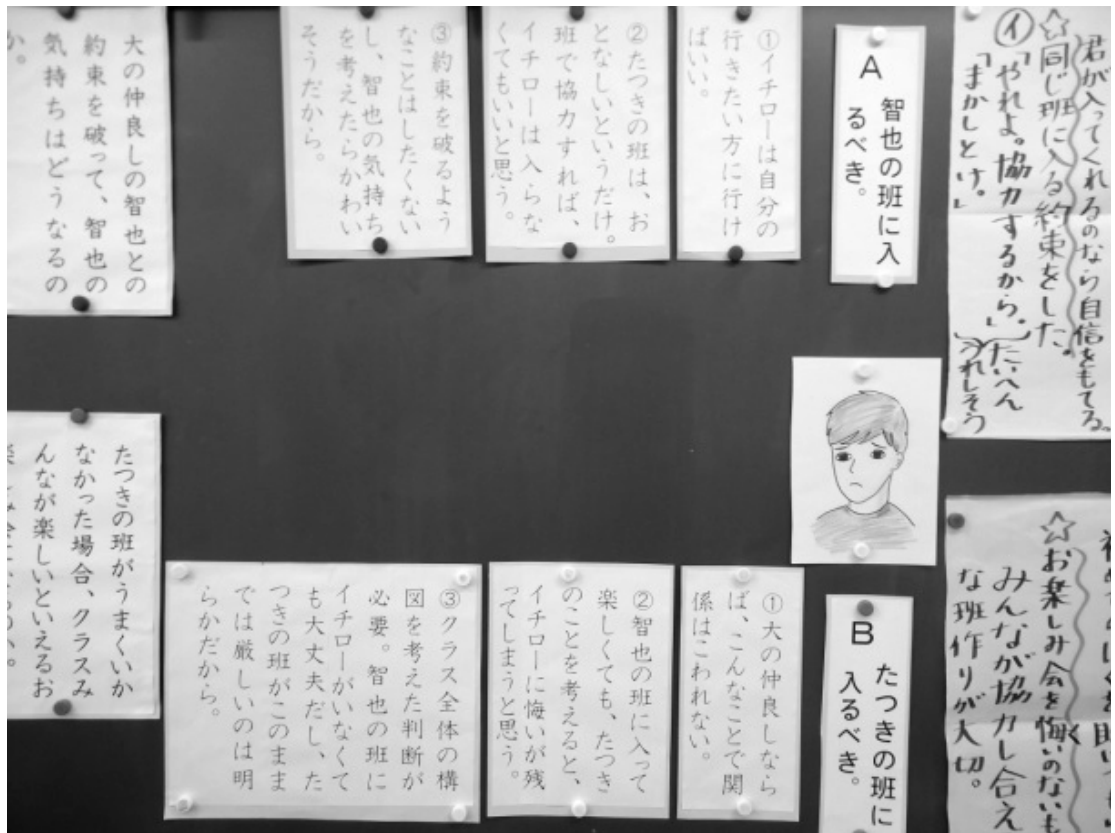 君が入ってくれるのなら自信をもてる。
☆同じ班に入る約束をした。
㋑「やれよ。協力するから。」
「まかしとけ。」
たいへん
うれしそう
A 智也の班に入
るべき。
①イチローは自分の
行きたい方に行け
ばいい。
②たつきの班は、お
となしいというだけ。
班で協力すれば、
イチローは入らな
くてもいいと思う。
③約束を破るよう
なことはしたくない
し、智也の気持ち
を考えたらかわい
そうだから。
大の仲良しの智也との
約束を破って、智也の
気持ちはどうなるの
か。
☆お楽しみ会を悔いのないも
みんなが協力し合え
な班作りが大切。
B たつきの班に
入るべき。
①大の仲良しなら
ば、こんなことで関
係はこわれない。
②智也の班に入って
楽しくても、たつき
のことを考えると、
イチローに悔いが残
ってしまうと思う。
③クラス全体の構
図を考えた判断が
必要。智也の班に
イチローがいなくて
も大丈夫だし、た
つきの班がこのまま
では厳しいのは明
らかだから。
たつきの班がうまくいか
なかった場合、クラスみ
んなが楽しいといえるお